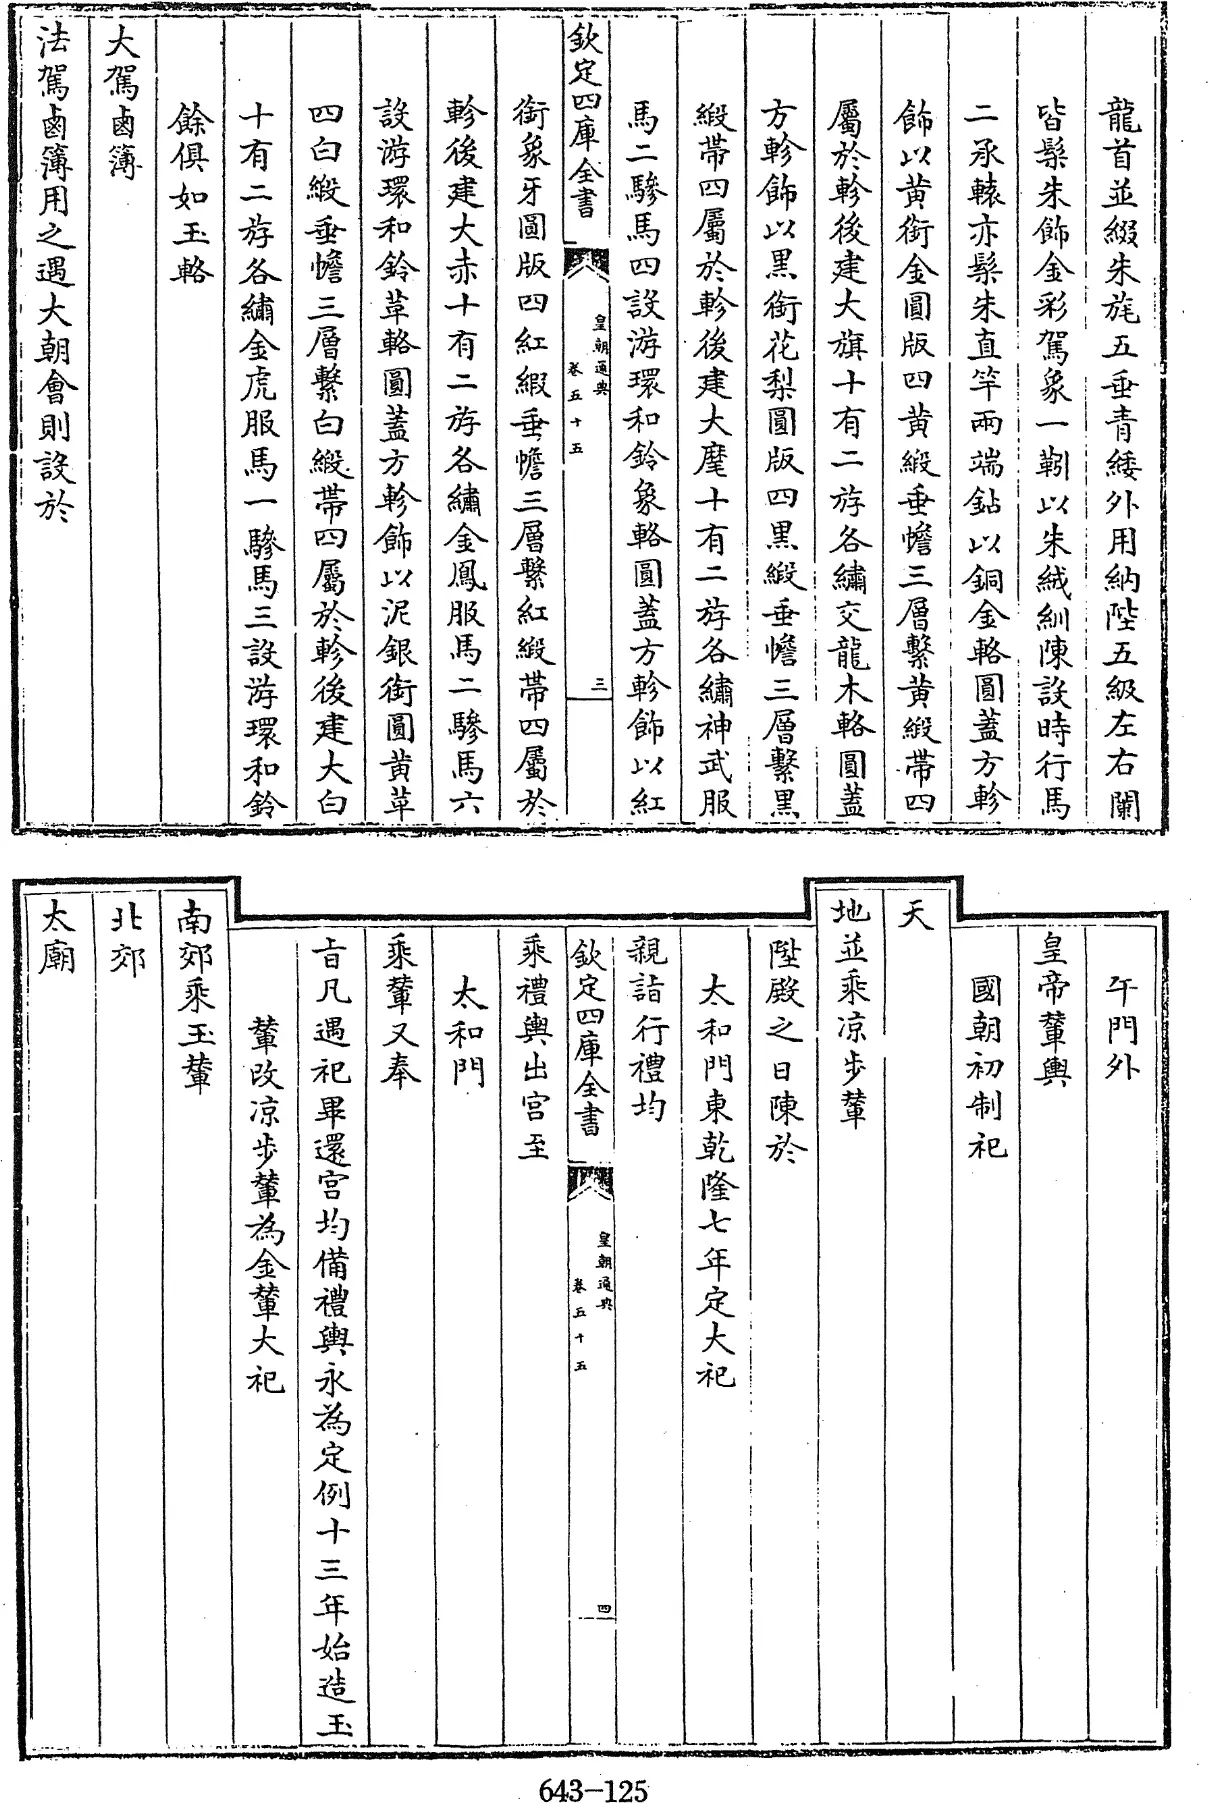 龍首並綴朱旄五垂青緌外用納陛五級左右闌
皆髹朱飾金彩駕象一靷以朱絨紃陳設時行馬
二承轅亦髹朱直竿兩端鉆以銅金輅圓蓋方軫
飾以黄銜金圓版四黄緞垂幨三層繫黄緞帶四
屬於軫後建大旗十有二斿各繡交龍木輅圓蓋
方軫飾以黒銜花梨圓版四黒緞垂幨三層繫黒
緞帶四屬於軫後建大麾十有二斿各繡神武服
馬二驂馬四設游環和鈴象輅圓蓋方軫飾以紅
欽定四庫全書
皇朝通典
卷五十五
三
銜象牙圓版四紅緞垂幨三層繫紅緞帶四屬於
軫後建大赤十有二斿各繡金鳳服馬二驂馬六
設游環和鈴革輅圓蓋方軫飾以泥銀銜圓黄革
四白緞垂幨三層繫白緞帶四屬於軫後建大白
十有二斿各繡金虎服馬一驂馬三設游環和鈴
餘俱如玉輅
大駕鹵簿
法駕鹵簿用之遇大朝會則設於
午門外
皇帝輦輿
國朝初制祀
天
地並乘凉步輦
陞殿之日陳於
太和門東乾隆七年定大祀
親詣行禮均
欽定四庫全書
皇朝通典
卷五十五
四
乘禮輿出宫至
太和門
乘輦又奉
㫖凡遇祀畢還宫均備禮輿永為定例十三年始造玉
輦改凉步輦為金輦大祀
南郊乘玉輦
北郊
太廟
643-125